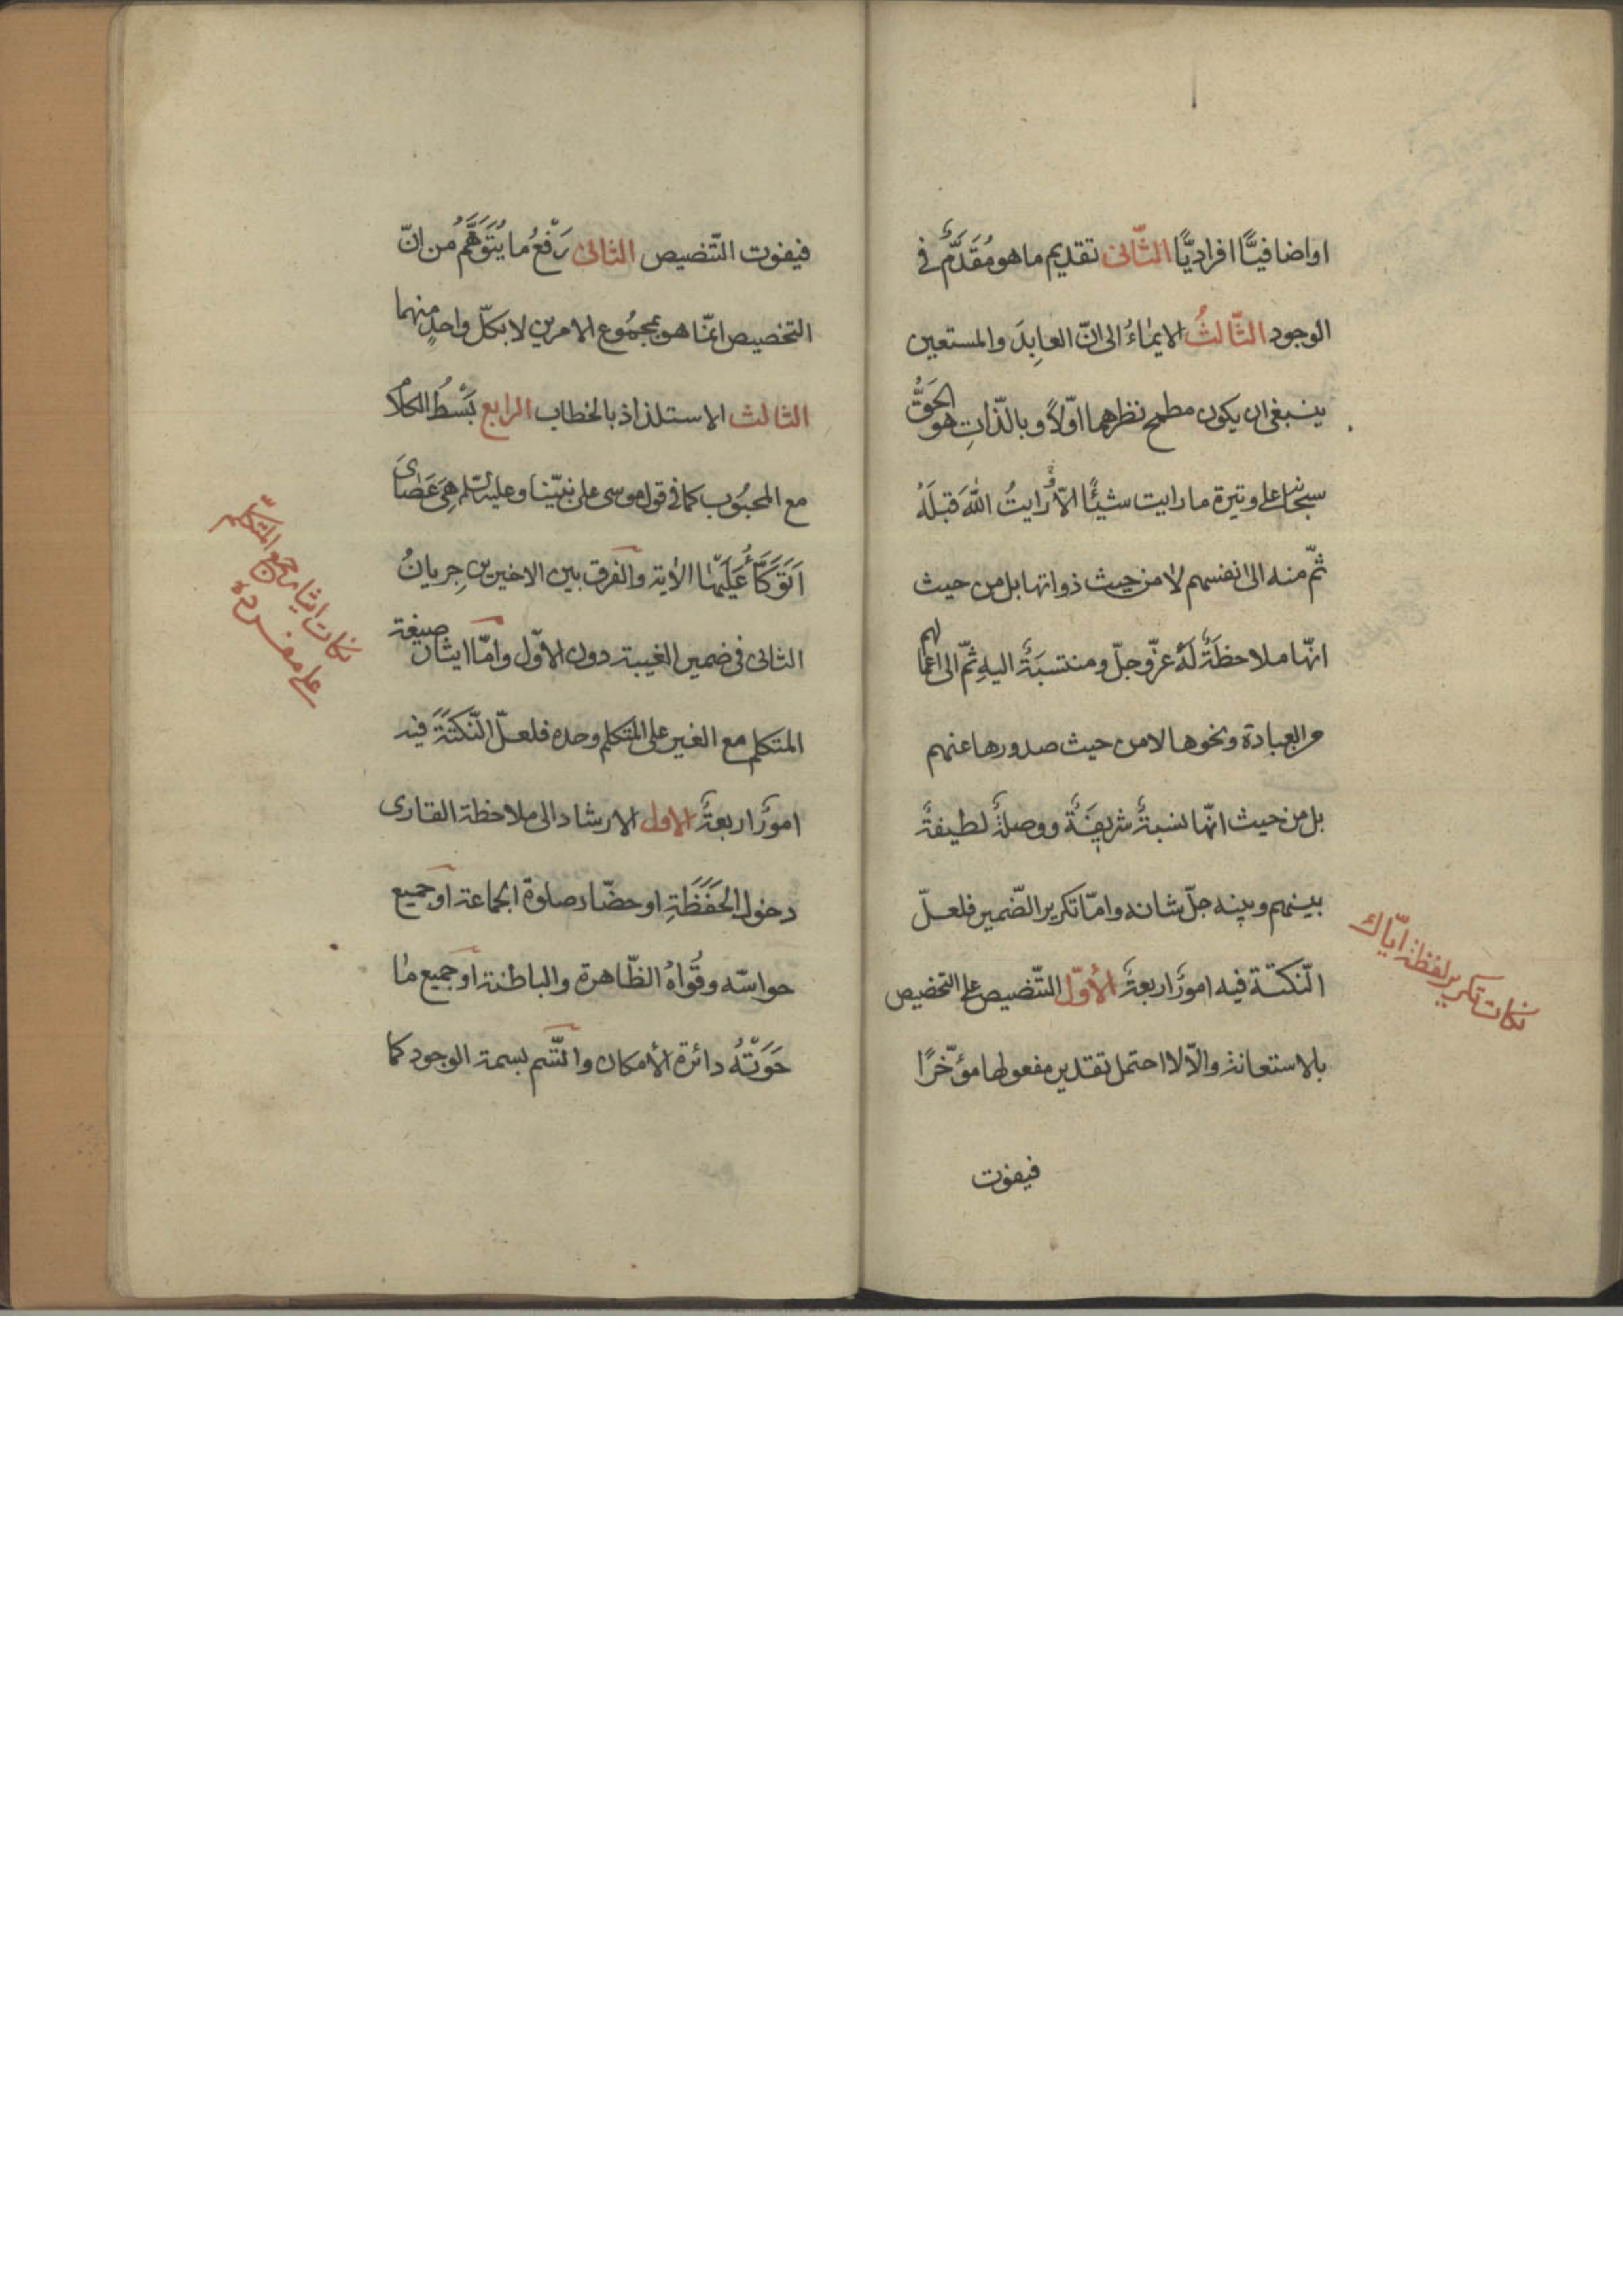 اواضافيًّا افراديًّا الثّانى تقديم ما هو مُقَدَّمٌ فى
الوجود الثّالثُ الايمٰاءُ الى انّ العابِدَ والمستعين
ينبغى ان يكون مطمح نظرهما اوّلاً وبالذّاتِ هو الحَقُّ
سبحانه على وتيرة ما رايت شيئًا الّا رايتُ اللّٰهَ قَبلَهُ
ثمّ منه الى انفسهم لا من حيث ذواتها بل من حيث
انّها ملاحظَةٌ لَهُ عزّ وجلّ ومنتسبَةٌ اليهِ ثمّ الى اعمالهم
من العبادة ونحوها لا من حيث صدورها عنهم
بل من حيث انّها نسبةٌ شريفَةٌ ووصلةٌ لطيفةٌ
بينهم وبينه جلّ شانه وامّا تكرير الضّمير فلعلّ
النّكتة فيه امورٌ اربعةٌ الأوّل التّنصيص على التخصيص
بالاستعانة والّا لاحتمل تقدير مفعولها مؤخّرًا
فيفوت
نكات تكرير لفظة ايّاك
فيفوت التّنصيص الثانى رَفْعُ ما يُتَوَهَّمُ من انّ
التخصيص انمّا هو بمجمُوع الامرين لا بكلّ واحدٍ منهما
الثالث الاستلذاذ بالخطاب الرابع بَسْطُ الكلام
مع المحبُوب كما فى قول موسى على نبيّنا وعليه السّلم هِىَ عَصٰاىَ
اَتَوَكَّأُ عَلَيهٰا الاٰية والفرق بين الاخيرين جِريانُ
الثانى فى ضمير الغيبة دون الاوّل وامّا ايثار صيغة
المتكلم مع الغير على المتكلم وحده فلعلّ النّكتَةَ فيه
امورٌ اربعةٌ الاول الارشاد الى ملاحظة القارى
دخول الحَفَظَةِ او حضّار صلوة الجماعة او جميع
حواسّه وقُواهُ الظّاهرة والباطنة او جميع مٰا
حَوَتْهُ دائرة الأمكان واتّسم بسمة الوجود كما
نكات ايثار جمع المتكلم
على مفرده